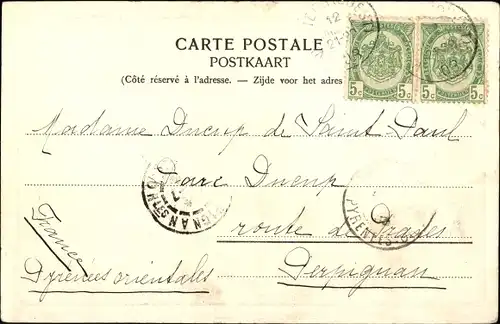 CARTE POSTALE
POSTKAART
(Côté réservé à l'adresse. — Zijde voor het adres
5c 5c 5c 5c
Madame Ducup de Saint-Paul
Parc Ducup
route de Prades
Perpignan
France
Pyrénées orientales